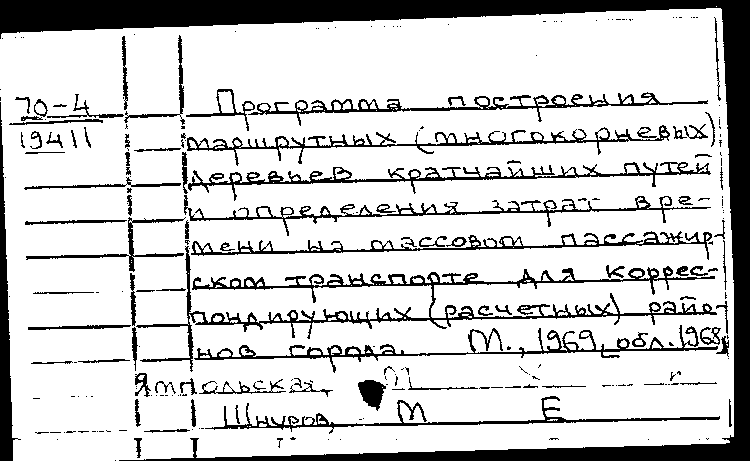 70-4
19411
Программа построения
маршрутных (многокорневых)
деревьев кратчайших путей
и определения затрат вре-
мени на массовом пассажир-
ском транспорте для коррес-
пондирующих (расчетных) райо-
нов города. М., 1969, [обл. 1968]
Ямпольская, М
Шнуров, М Е